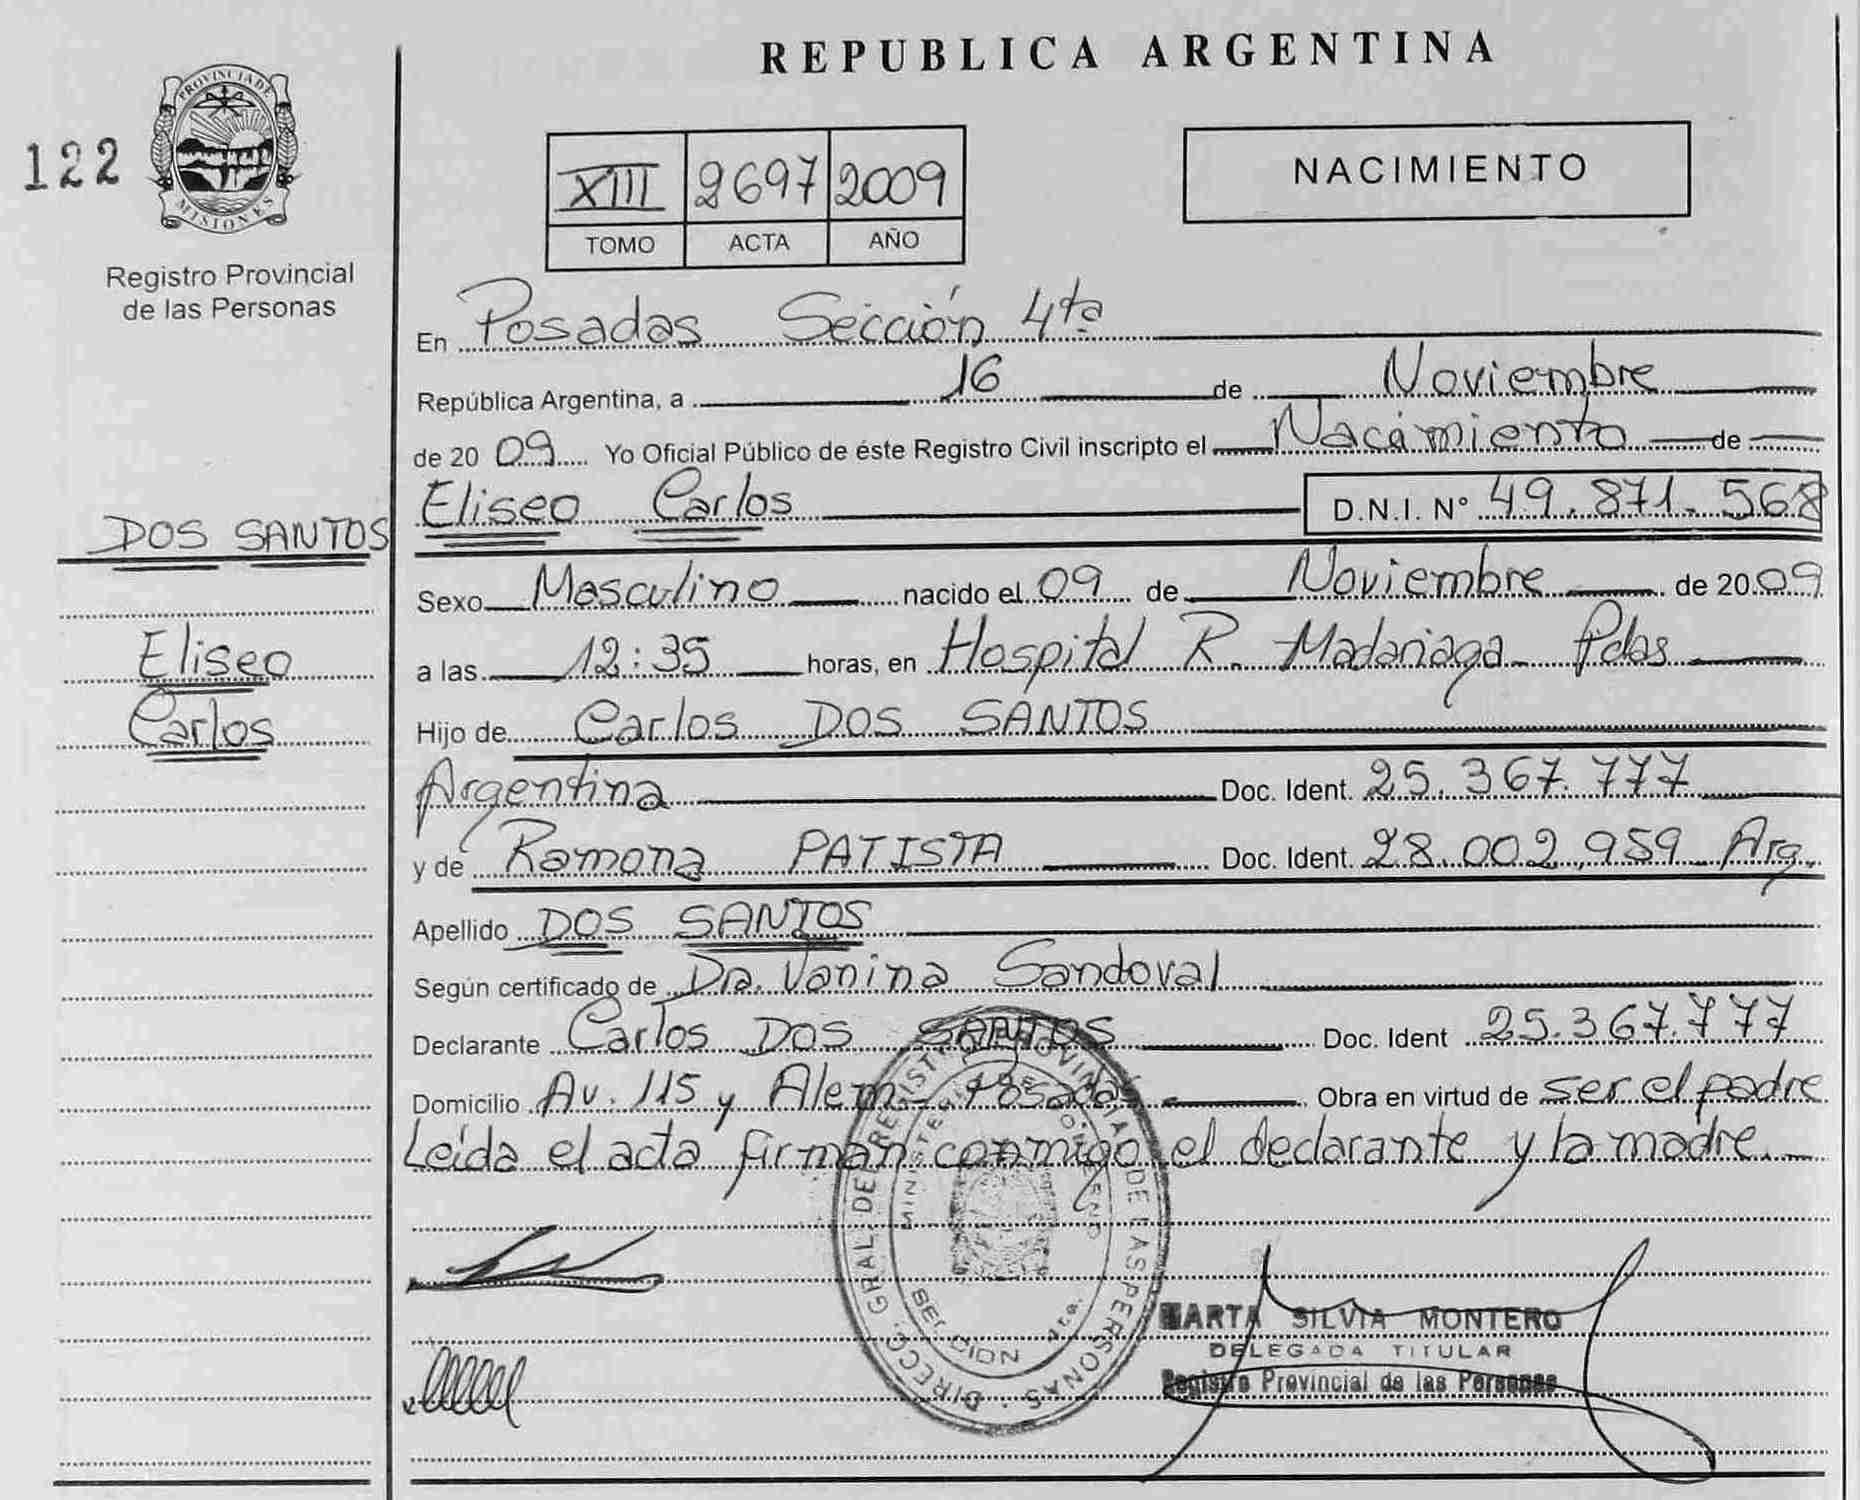 REPUBLICA ARGENTINA
122
PROVINCIA DE
MISIONES
Registro Provincial
de las Personas
XIII 2697 2009
TOMO ACTA AÑO
NACIMIENTO
En Posadas Sección 4ta
República Argentina, a 16 de Noviembre
de 2009 Yo Oficial Público de éste Registro Civil inscripto el Nacimiento de
Eliseo Carlos D.N.I. N° 49.871.568
DOS SANTOS
Eliseo
Carlos
Sexo Masculino nacido el 09 de Noviembre de 2009
a las 12:35 horas, en Hospital R. Madariaga Pdas
Hijo de Carlos DOS SANTOS
Argentina Doc. Ident. 25.367.777
y de Ramona PATISTA Doc. Ident. 28.002.959 Arg.
Apellido DOS SANTOS
Según certificado de Dra. Vanina Sandoval
Declarante Carlos DOS SANTOS Doc. Ident 25.367.777
Domicilio Av. 115 y Alem - Posadas Obra en virtud de ser el padre
Leída el acta firman conmigo el declarante y la madre.
DIRECC. GRAL. DE REGISTRO PROVINCIAL DE LAS PERSONAS
MINISTERIO DE GOBIERNO
SECCION 4ta.
MARTA SILVIA MONTERO
DELEGADA TITULAR
Registro Provincial de las Personas